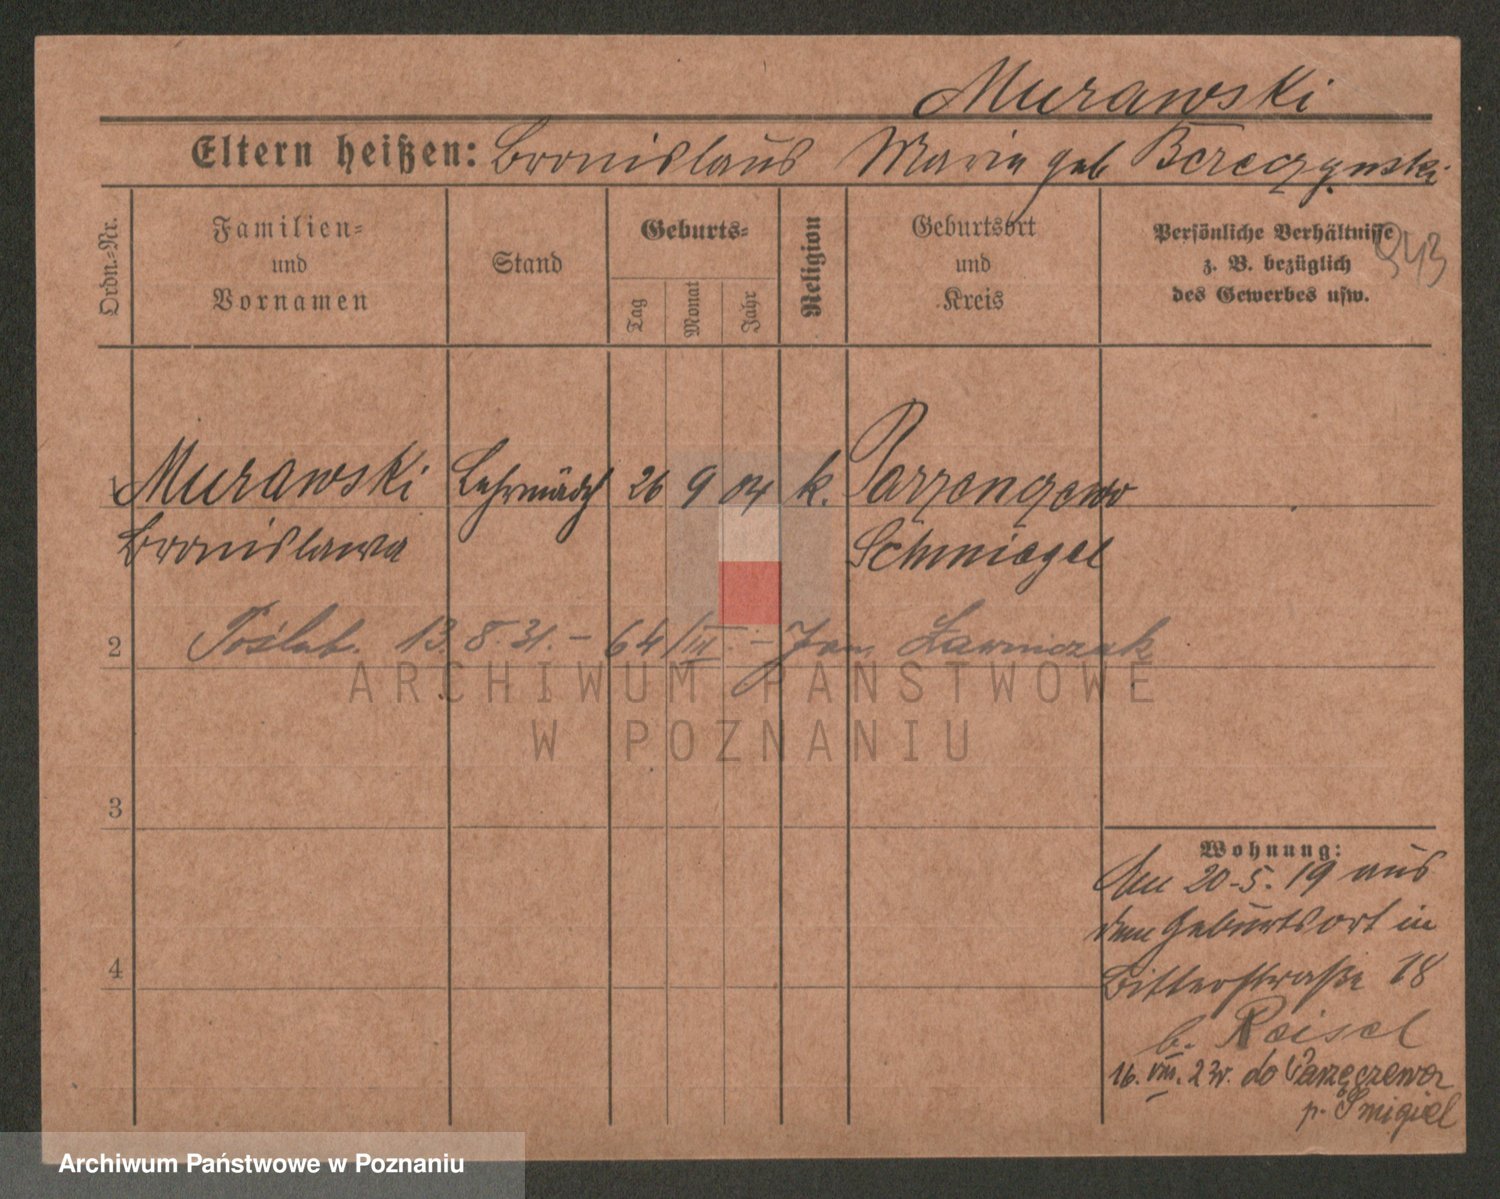 Murawski
Eltern heißen: Bronislaus Maria geb Bereczynski
Ordn.-Nr.
Familien-
und
Vornamen
Stand
Geburts-
Tag
Monat
Jahr
Religion
Geburtsort
und
Kreis
Persönliche Verhältnisse
z. B. bezüglich
des Gewerbes usw.
943
1 Murawski Lehrmädch 26 9 04 k. Parzenczewo
Bronislawa Schmiegel
Pośleb. 13.8.31. - 64/III. - Jan Ławniczak
2
ARCHIWUM PAŃSTWOWE
W POZNANIU
3
Wohnung:
Am 20-5.19 aus
dem Geburtsort in
4
Bitterstraße 18
b. Reisel
16.VIII.23r. do Parzęczewa
p. Śmigiel
Archiwum Państwowe w Poznaniu